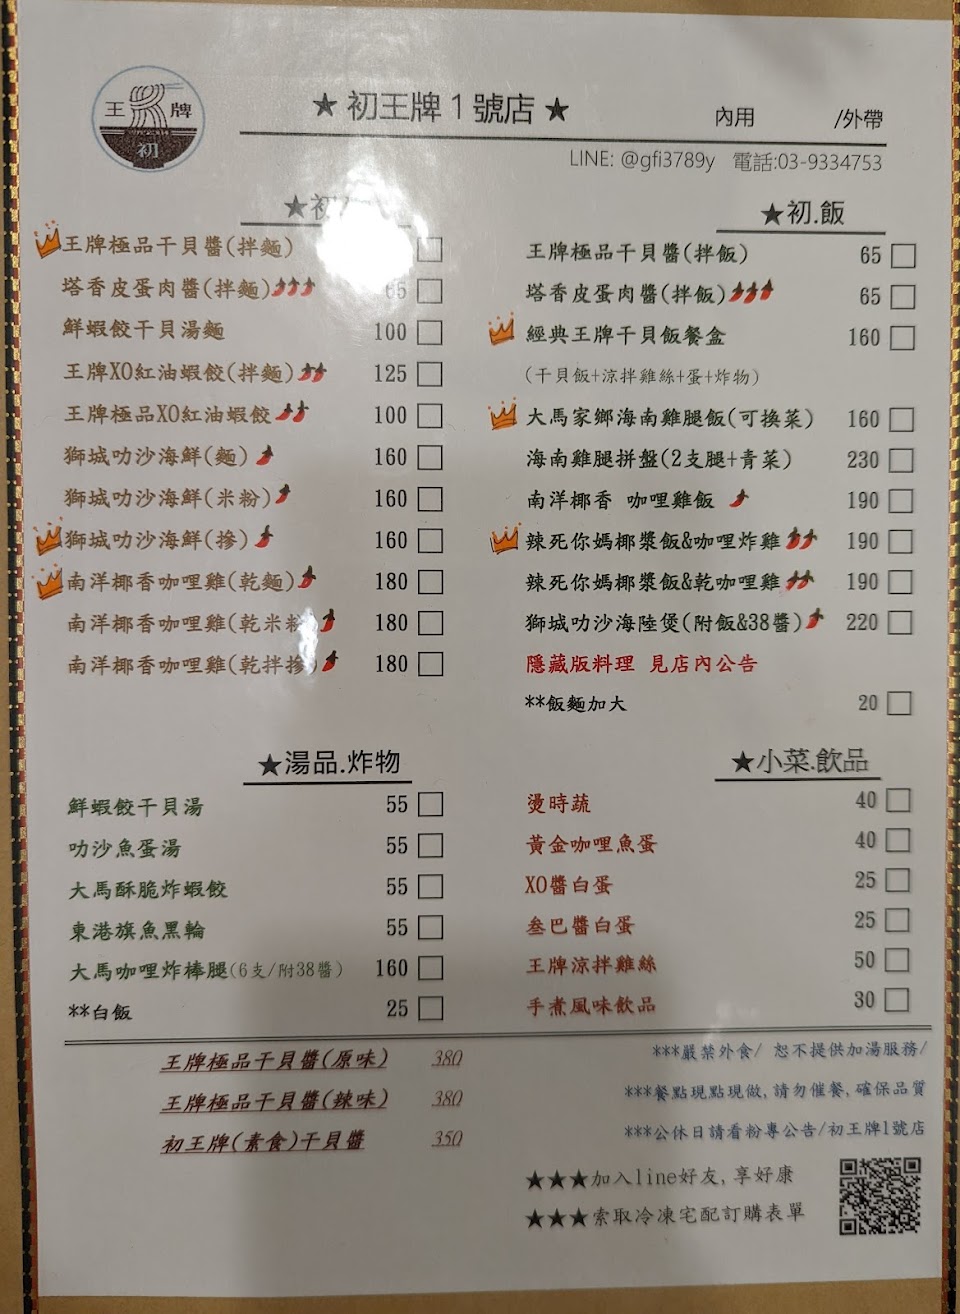 王 牌
初
★ 初王牌 1 號店 ★
內用 /外帶
LINE: @gfi3789y 電話:03-9334753
★初
王牌極品干貝醬(拌麵)
塔香皮蛋肉醬(拌麵) 65
鮮蝦餃干貝湯麵 100
王牌XO紅油蝦餃(拌麵) 125
王牌極品XO紅油蝦餃 100
獅城叻沙海鮮(麵) 160
獅城叻沙海鮮(米粉) 160
獅城叻沙海鮮(摻) 160
南洋椰香咖哩雞(乾麵) 180
南洋椰香咖哩雞(乾米粉) 180
南洋椰香咖哩雞(乾拌摻) 180
★初.飯
王牌極品干貝醬(拌飯) 65
塔香皮蛋肉醬(拌飯) 65
經典王牌干貝飯餐盒 160
(干貝飯+涼拌雞絲+蛋+炸物)
大馬家鄉海南雞腿飯(可換菜) 160
海南雞腿拼盤(2支腿+青菜) 230
南洋椰香 咖哩雞飯 190
辣死你媽椰漿飯&咖哩炸雞 190
辣死你媽椰漿飯&乾咖哩雞 190
獅城叻沙海陸煲(附飯&38醬) 220
隱藏版料理 見店內公告
**飯麵加大 20
★湯品.炸物
鮮蝦餃干貝湯 55
叻沙魚蛋湯 55
大馬酥脆炸蝦餃 55
東港旗魚黑輪 55
大馬咖哩炸棒腿(6支/附38醬) 160
**白飯 25
★小菜.飲品
燙時蔬 40
黃金咖哩魚蛋 40
XO醬白蛋 25
叁巴醬白蛋 25
王牌涼拌雞絲 50
手煮風味飲品 30
王牌極品干貝醬(原味) 380
王牌極品干貝醬(辣味) 380
初王牌(素食)干貝醬 350
***嚴禁外食/ 恕不提供加湯服務/
***餐點現點現做,請勿催餐,確保品質
***公休日請看粉專公告/初王牌1號店
★★★加入line好友,享好康
★★★索取冷凍宅配訂購表單